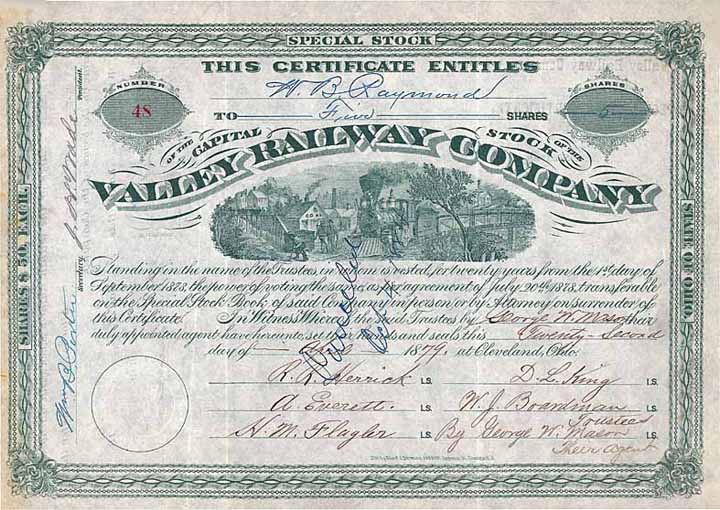 SPECIAL STOCK
THIS CERTIFICATE ENTITLES
NUMBER
48
W. B. Raymond
SHARES
5
TO Five SHARES
OF THE CAPITAL STOCK OF THE
VALLEY RAILWAY COMPANY
Standing in the name of the Trustees, in whom is vested, for twenty years from the 1st day of
September 1878, the power of voting the same as per agreement of July 20th 1878, transferable
on the Special Stock Book of said Company in person or by Attorney on surrender of
this Certificate. In Witness Whereof the said Trustees by George W. Mason their
duly appointed agent have hereunto set their hands and seals this Twenty-Second
day of 1879. at Cleveland, Ohio.
Cancelled
R. R. Herrick L.S. D. L. King L.S.
A. Everett. L.S. W. J. Boardman L.S.
Trustees
H. M. Flagler L.S. By George W. Mason L.S.
Their Agent
SHARES $50, EACH.
STATE OF OHIO
President.
Secretary.
Wm. B. Porter